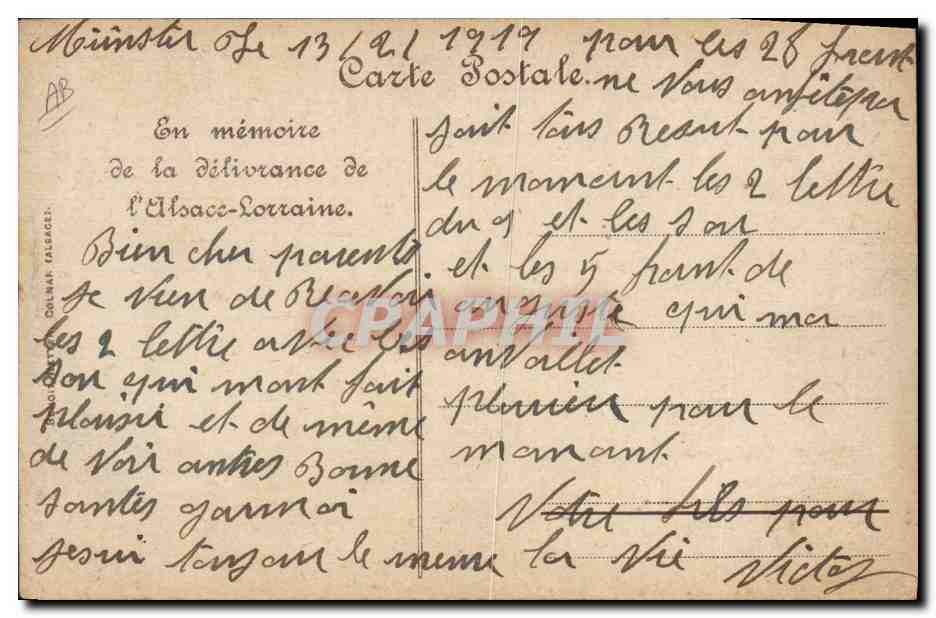 Münster le 13/2/1919 pour les 28 frant
Carte Postale. ne vous
AB
En mémoire
de la délivrance de
l'Alsace-Lorraine.
COLMAR (ALSACE).
Bien cher parents
je vien de Resevoir
les 2 lettre avec les
sou qui mont fait
plaisir et de même
de voir antres Bonne
santés gaumoi
jesui toujour le meme
sait tous Resut pour
le manant les 2 lettre
du 9 et les sou
et les 5 frant de
auguste qui ma
anvallet
plurien pour le
manant
Votre fils pour
la vie Victor
CPAPHIL